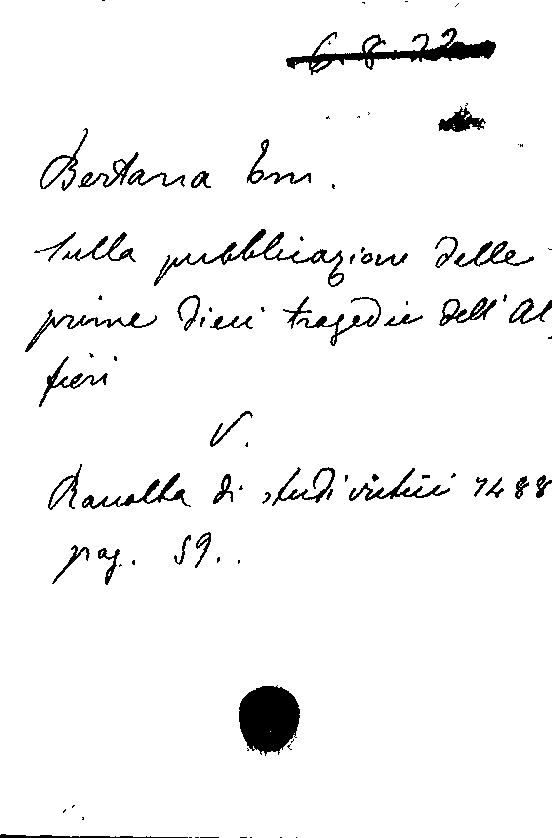 6.8.22
Bertana Em.
Sulla pubblicazione delle
prime dieci tragedie dell'Al
fieri
V.
Raccolta di studi critici 7488
pag. 59..